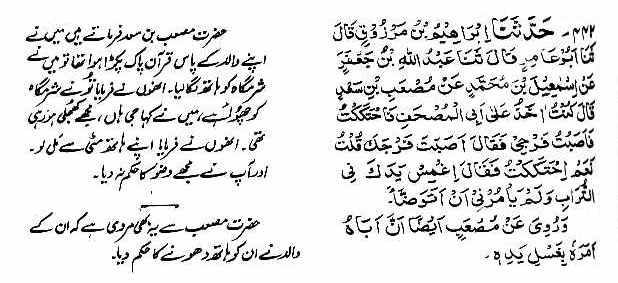 ۴۴۲۔ حَدَّثَنَا اِبْرَاهِيْمُ بْنُ مَرْزُوْقٍ قَالَ
ثَنَا اَبُوْ عَامِرٍ قَالَ ثَنَا عَبْدُ اللهِ بْنُ جَعْفَرٍ
عَنْ اِسْمٰعِيْلَ بْنِ مُحَمَّدٍ عَنْ مُصْعَبِ بْنِ سَعْدٍ
قَالَ كُنْتُ اٰخُذُ عَلٰى اَبِى الْمُصْحَفَ فَاحْتَكَكْتُ
فَاَصَبْتُ فَرْجِىْ فَقَالَ اَصَبْتَ فَرْجَكَ قُلْتُ
نَعَمْ اِحْتَكَكْتُ فَقَالَ اِغْمِسْ يَدَكَ فِى
التُّرَابِ وَلَمْ يَأْمُرْنِىْ اَنْ اَتَوَضَّأَ۔
وَرُوِىَ عَنْ مُصْعَبٍ اَيْضًا اَنَّ اَبَاهُ
اَمَرَهٗ بِغَسْلِ يَدِهٖ۔
حضرت مصعب بن سعد فرماتے ہیں میں نے
اپنے والد کے پاس قرآن پاک پکڑا ہوا تھا تو میں نے
شرمگاہ کو ہاتھ لگا لیا۔ انھوں نے فرمایا تُو نے شرمگاہ
کو چھولیا ہے، میں نے کہا جی ہاں، مجھے کھجلی ہو رہی
تھی۔ انھوں نے فرمایا اپنے ہاتھ مٹی سے مل لو۔
اور آپ نے مجھے وضو کا حکم نہ دیا۔
حضرت مصعب سے یہ بھی مروی ہے کہ ان کے
والد نے ان کو ہاتھ دھونے کا حکم دیا۔